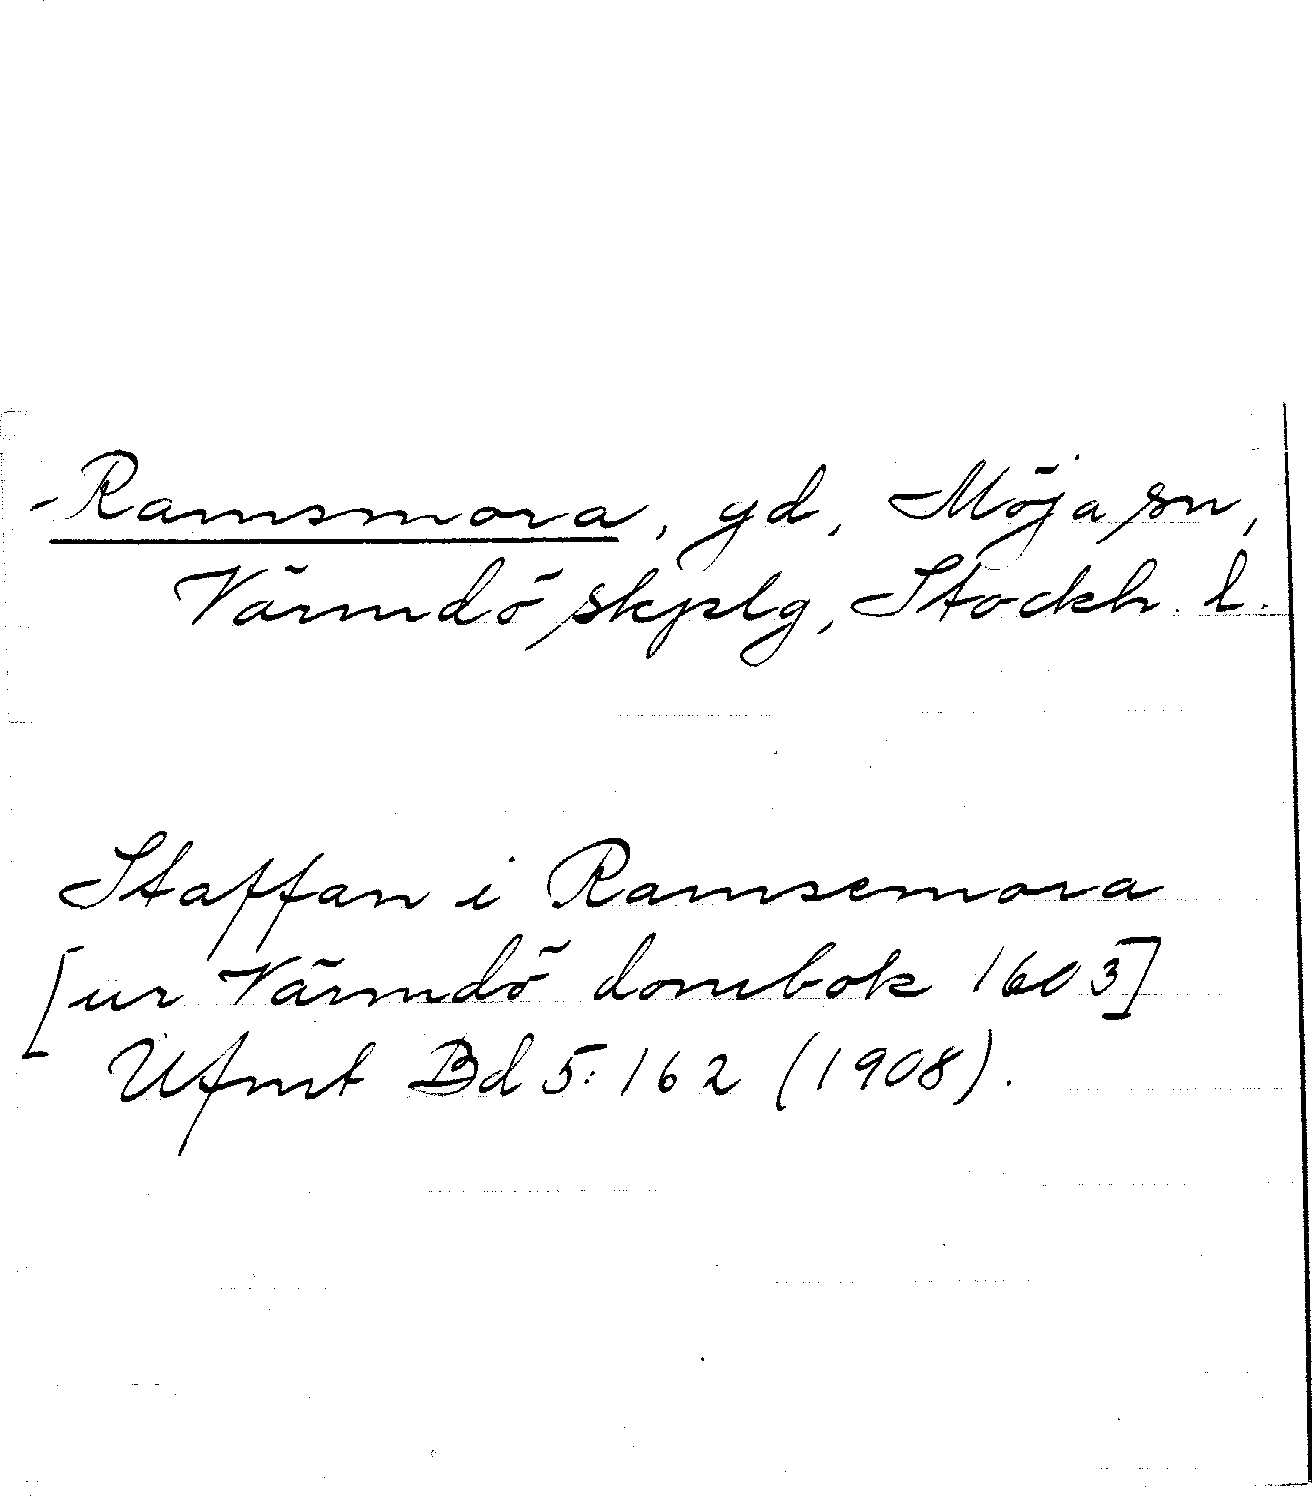 Ramsmora, gd, Möja sn,
Värmdö skplg, Stockh. l.
Staffan i Ramsemora
[ur Värmdö dombok 1603]
Ufmt Bd 5:162 (1908).